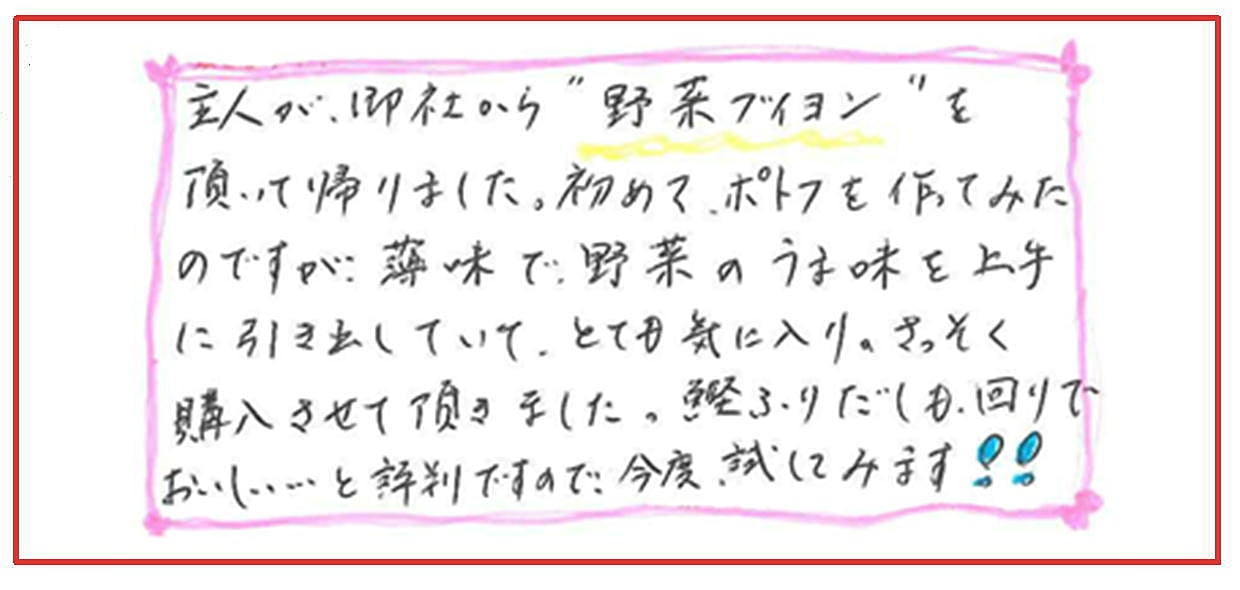 主人が、御社から"野菜ブイヨン"を
頂いて帰りました。初めて、ポトフを作ってみた
のですが、薄味で、野菜のうま味を上手
に引き出していて、とても気に入り。さっそく
購入させて頂きました。鰹ふりだしも、回りで
おいしい…と評判ですので、今度、試してみます!!